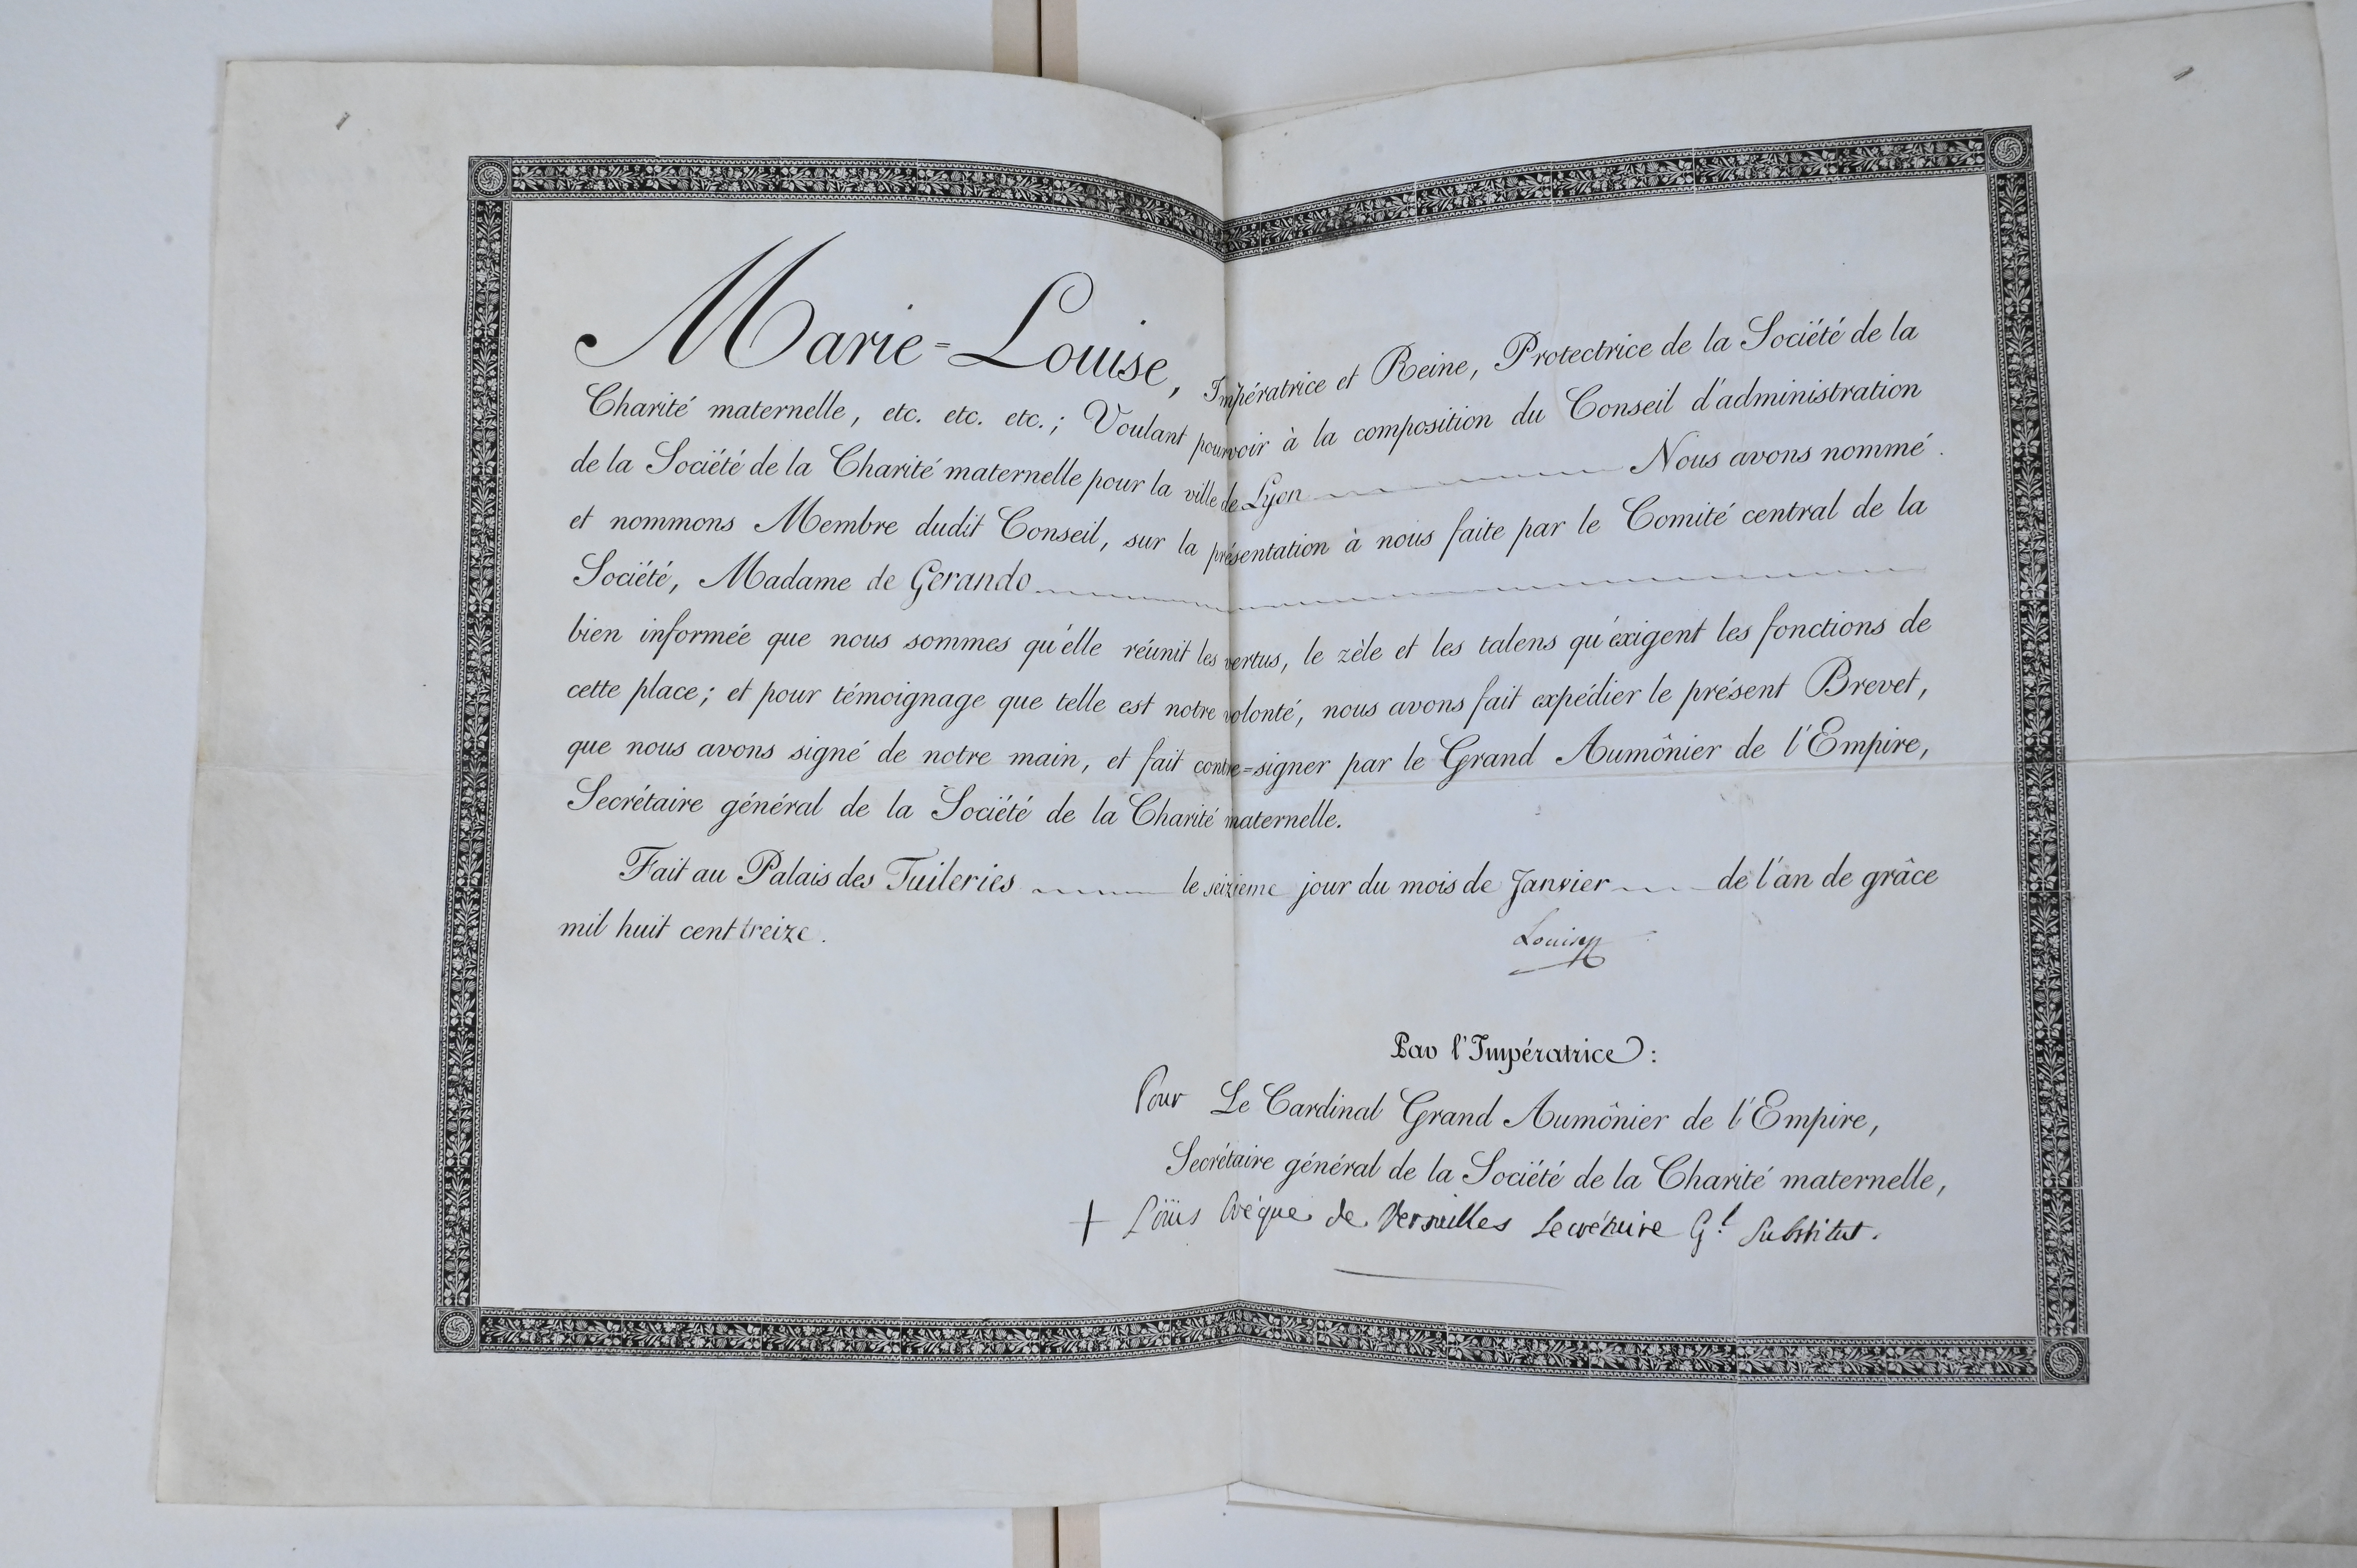 Marie-Louise, Impératrice et Reine, Protectrice de la Société de la
Charité maternelle, etc. etc. etc.; Voulant pourvoir à la composition du Conseil d'administration
de la Société de la Charité maternelle pour la ville de Lyon Nous avons nommé
et nommons Membre dudit Conseil, sur la présentation à nous faite par le Comité central de la
Société, Madame de Gerando
bien informée que nous sommes qu'elle réunit les vertus, le zèle et les talens qu'exigent les fonctions de
cette place; et pour témoignage que telle est notre volonté, nous avons fait expédier le présent Brevet,
que nous avons signé de notre main, et fait contre-signer par le Grand Aumônier de l'Empire,
Secrétaire général de la Société de la Charité maternelle.
Fait au Palais des Tuileries le seizieme jour du mois de Janvier de l'an de grâce
mil huit cent treize.
Louise
Par l'Impératrice:
Pour Le Cardinal Grand Aumônier de l'Empire,
Secrétaire général de la Société de la Charité maternelle,
+ Louis Evêque de Versailles Secrétaire Gl Substitut.